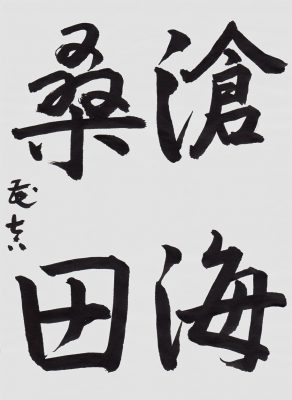 滄海
桑田